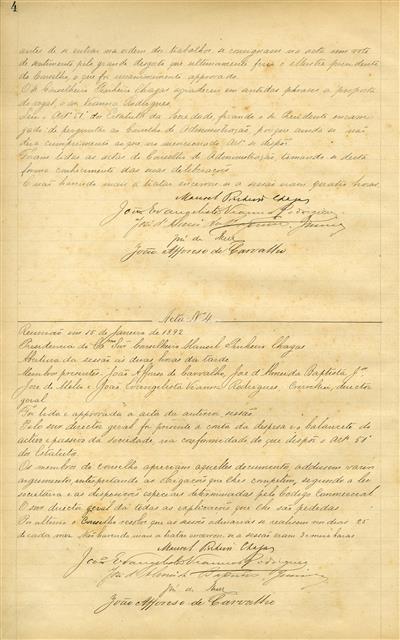 4
antes de se entrar na ordem dos trabalhos, se consignasse na acta um voto
de sentimento pelo grande desgosto que ultimamente feriu o illustre presidente
do Conselho, o que foi unanimemente approvado.
O Sr. Conselheiro Pinheiro Chagas agradeceu em sentidas phrases a proposta
do vogal, o Sr. Vianna Rodrigues.
do Estatuto da Sociedade ficando o Sr. Presidente encarre
gado de perguntar ao Conselho de Administração, porque ainda se não
dera cumprimento ao que no mencionado Artº se dispõe.
Foram lidas as actas do Conselho de Administração, tomando-se desta
forma conhecimento das suas deliberações.
E não havendo mais a tratar encerrou-se a sessão eram quatro horas.
Manoel Pinheiro Chagas
João Evangelista Vianna Rodrigues
José d'Almeida Baptista Junior
José de Mello
João Affonso de Carvalho
Acta Nº 4
Reunião em 15 de Janeiro de 1892
Presidencia do Exmo Snr Conselheiro Manoel Pinheiro Chagas
Abertura da sessão ás duas horas da tarde
Membros presentes: João Affonso de Carvalho, José d'Almeida Baptista Jor
José de Mello e João Evangelista Vianna Rodrigues, director
geral
Foi lida e approvada a acta da anterior sessão.
Pelo snr director geral foi presente a conta da despeza e o balancete do
activo e passivo da sociedade na conformidade do que dispõe o Artº 51º
dos Estatutos.
Os membros do conselho apreciam aquelles documentos, adduzem varios
argumentos, interpretando as obrigações que lhes competem, segundo a lei
societaria e as disposições especiaes determinadas pelo Codigo Commercial.
O snr director geral dá todas as explicações que lhe são pedidas.
Por ultimo o Conselho resolve que as sessões ordinarias se realisem nos dias 25
de cada mez. Não havendo mais a tratar encerrou-se a sessão eram 3 e meia horas.
Manoel Pinheiro Chagas
João Evangelista Vianna Rodrigues
José d'Almeida Baptista Junior
José de Mello
João Affonso de Carvalho